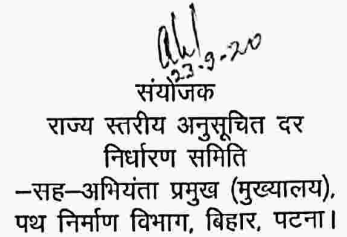 23-9-20
संयोजक
राज्य स्तरीय अनुसूचित दर
निर्धारण समिति
–सह–अभियंता प्रमुख (मुख्यालय),
पथ निर्माण विभाग, बिहार, पटना।